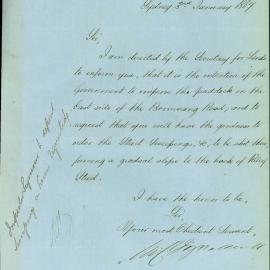 Sydney 3rd January 1867.
Sir,
I am directed by the Secretary for Lands
to inform you, that it is the intention of the
Government to enclose the paddock on the
East side of the Road, and to
request that you will have the goodness to
order the Street Sweepings, &c, to be shot there,
forming a gradual slope to the back of Riley
Street.
I have the honor to be,
Sir,
Your most Obedient Servant